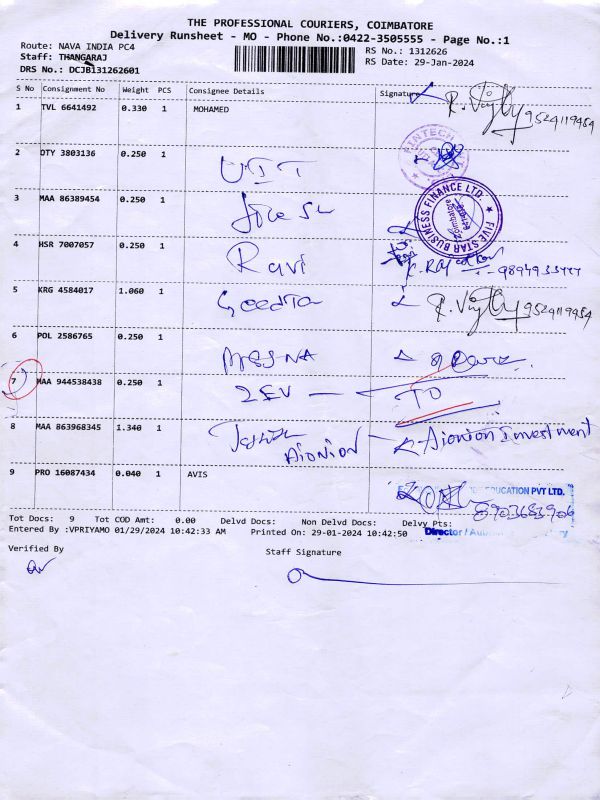 THE PROFESSIONAL COURIERS, COIMBATORE
Delivery Runsheet - MO - Phone No.:0422-3505555 - Page No.:1
Route: NAVA INDIA PC4 RS No.: 1312626
Staff: THANGARAJ RS Date: 29-Jan-2024
DRS No.: DCJB131262601
S No Consignment No Weight PCS Consignee Details Signature
1 TVL 6641492 0.330 1 MOHAMED 9524119484
2 DTY 3803136 0.250 1
FINTECH
3 MAA 86389454 0.250 1
FIVE STAR BUSINESS FINANCE LTD.
4 HSR 7007057 0.250 1 Ravi
5 KRG 4584017 1.060 1 Geetha 9524119484
6 POL 2586765 0.250 1
7 MAA 944538438 0.250 1 TO
8 MAA 863968345 1.340 1 AIONION Aionion Investment
9 PRO 16087434 0.040 1 AVIS
EDUCATION PVT LTD.
8903683906
Director /
Tot Docs: 9 Tot COD Amt: 0.00 Delvd Docs: Non Delvd Docs: Delvy Pts:
Entered By :VPRIYAMO 01/29/2024 10:42:33 AM Printed On: 29-01-2024 10:42:50
Verified By Staff Signature